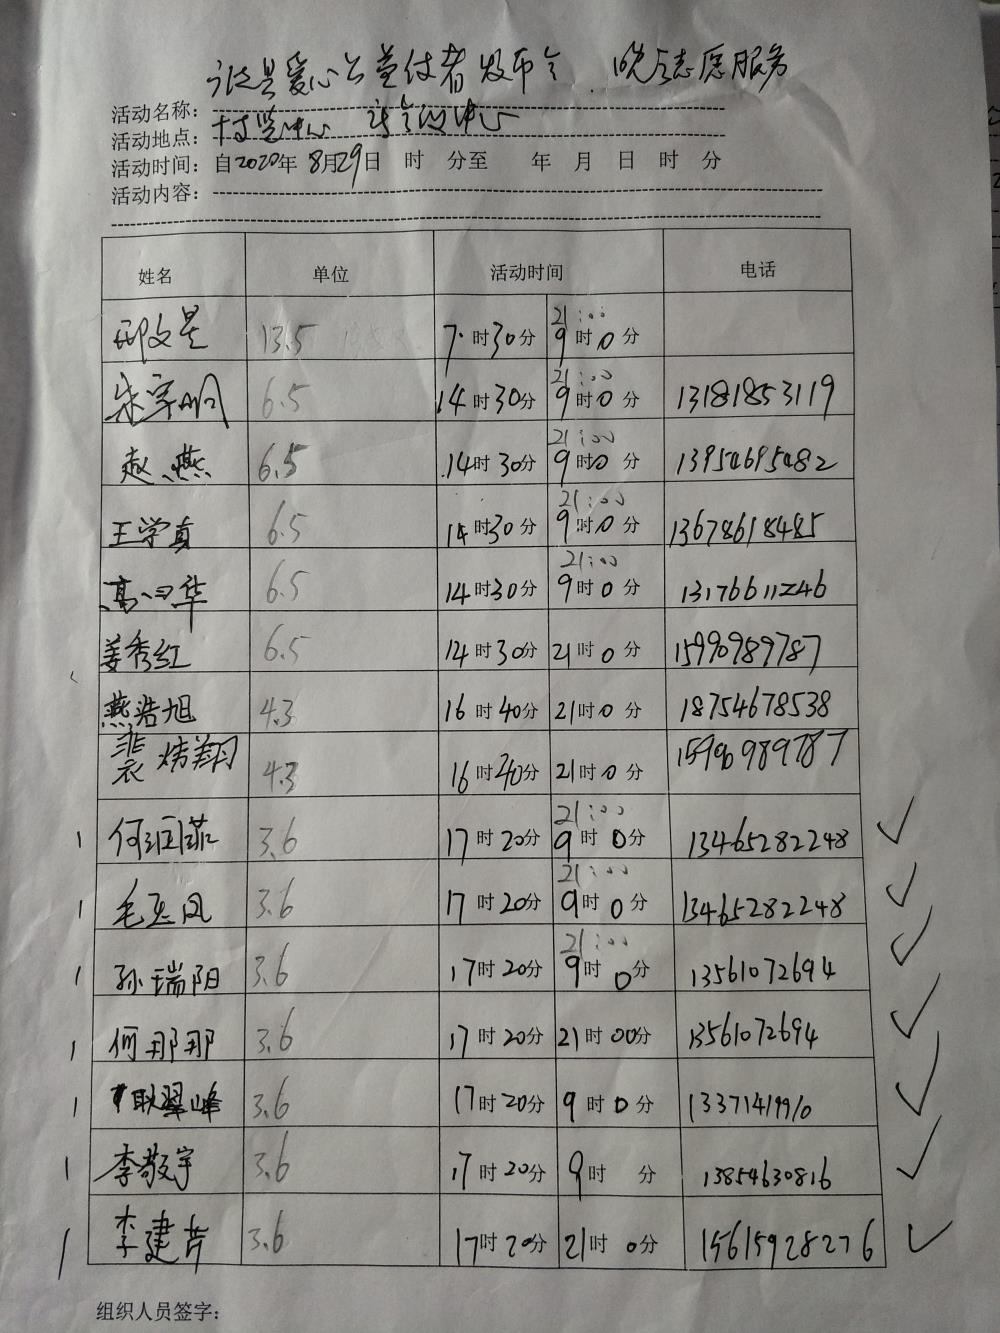 晚会志愿服务
活动名称：
活动地点： 博览中心 诗会议中心
活动时间：自2020年 8月29日 时 分至 年 月 日 时 分
活动内容：
姓名 单位 活动时间 电话
邢文星 13.5 7时30分 21:00 9时0分
6.5 14时30分 21:00 9时0分 13181853119
赵燕 6.5 14时30分 21:00 9时0分 13954695482
王学真 6.5 14时30分 21:00 9时0分 13678618485
高 华 6.5 14时30分 21:00 9时0分 13176611246
姜秀红 6.5 14时30分 21时0分 15990989787
燕浩旭 4.3 16时40分 21时0分 18754678538
裴炜翔 4.3 16时40分 21时0分 15990989787
1 何 菲 3.6 17时20分 21:00 9时0分 13465282248
1 毛 凤 3.6 17时20分 21:00 9时0分 13465282248
1 孙瑞阳 3.6 17时20分 21:00 9时0分 13561072694
1 何那那 3.6 17时20分 21时00分 13561072694
1 耿翠峰 3.6 17时20分 9时0分 13371419910
1 李敬宇 3.6 17时20分 9时 分 13854630816
1 李建芹 3.6 17时20分 21时0分 15615928276
组织人员签字：